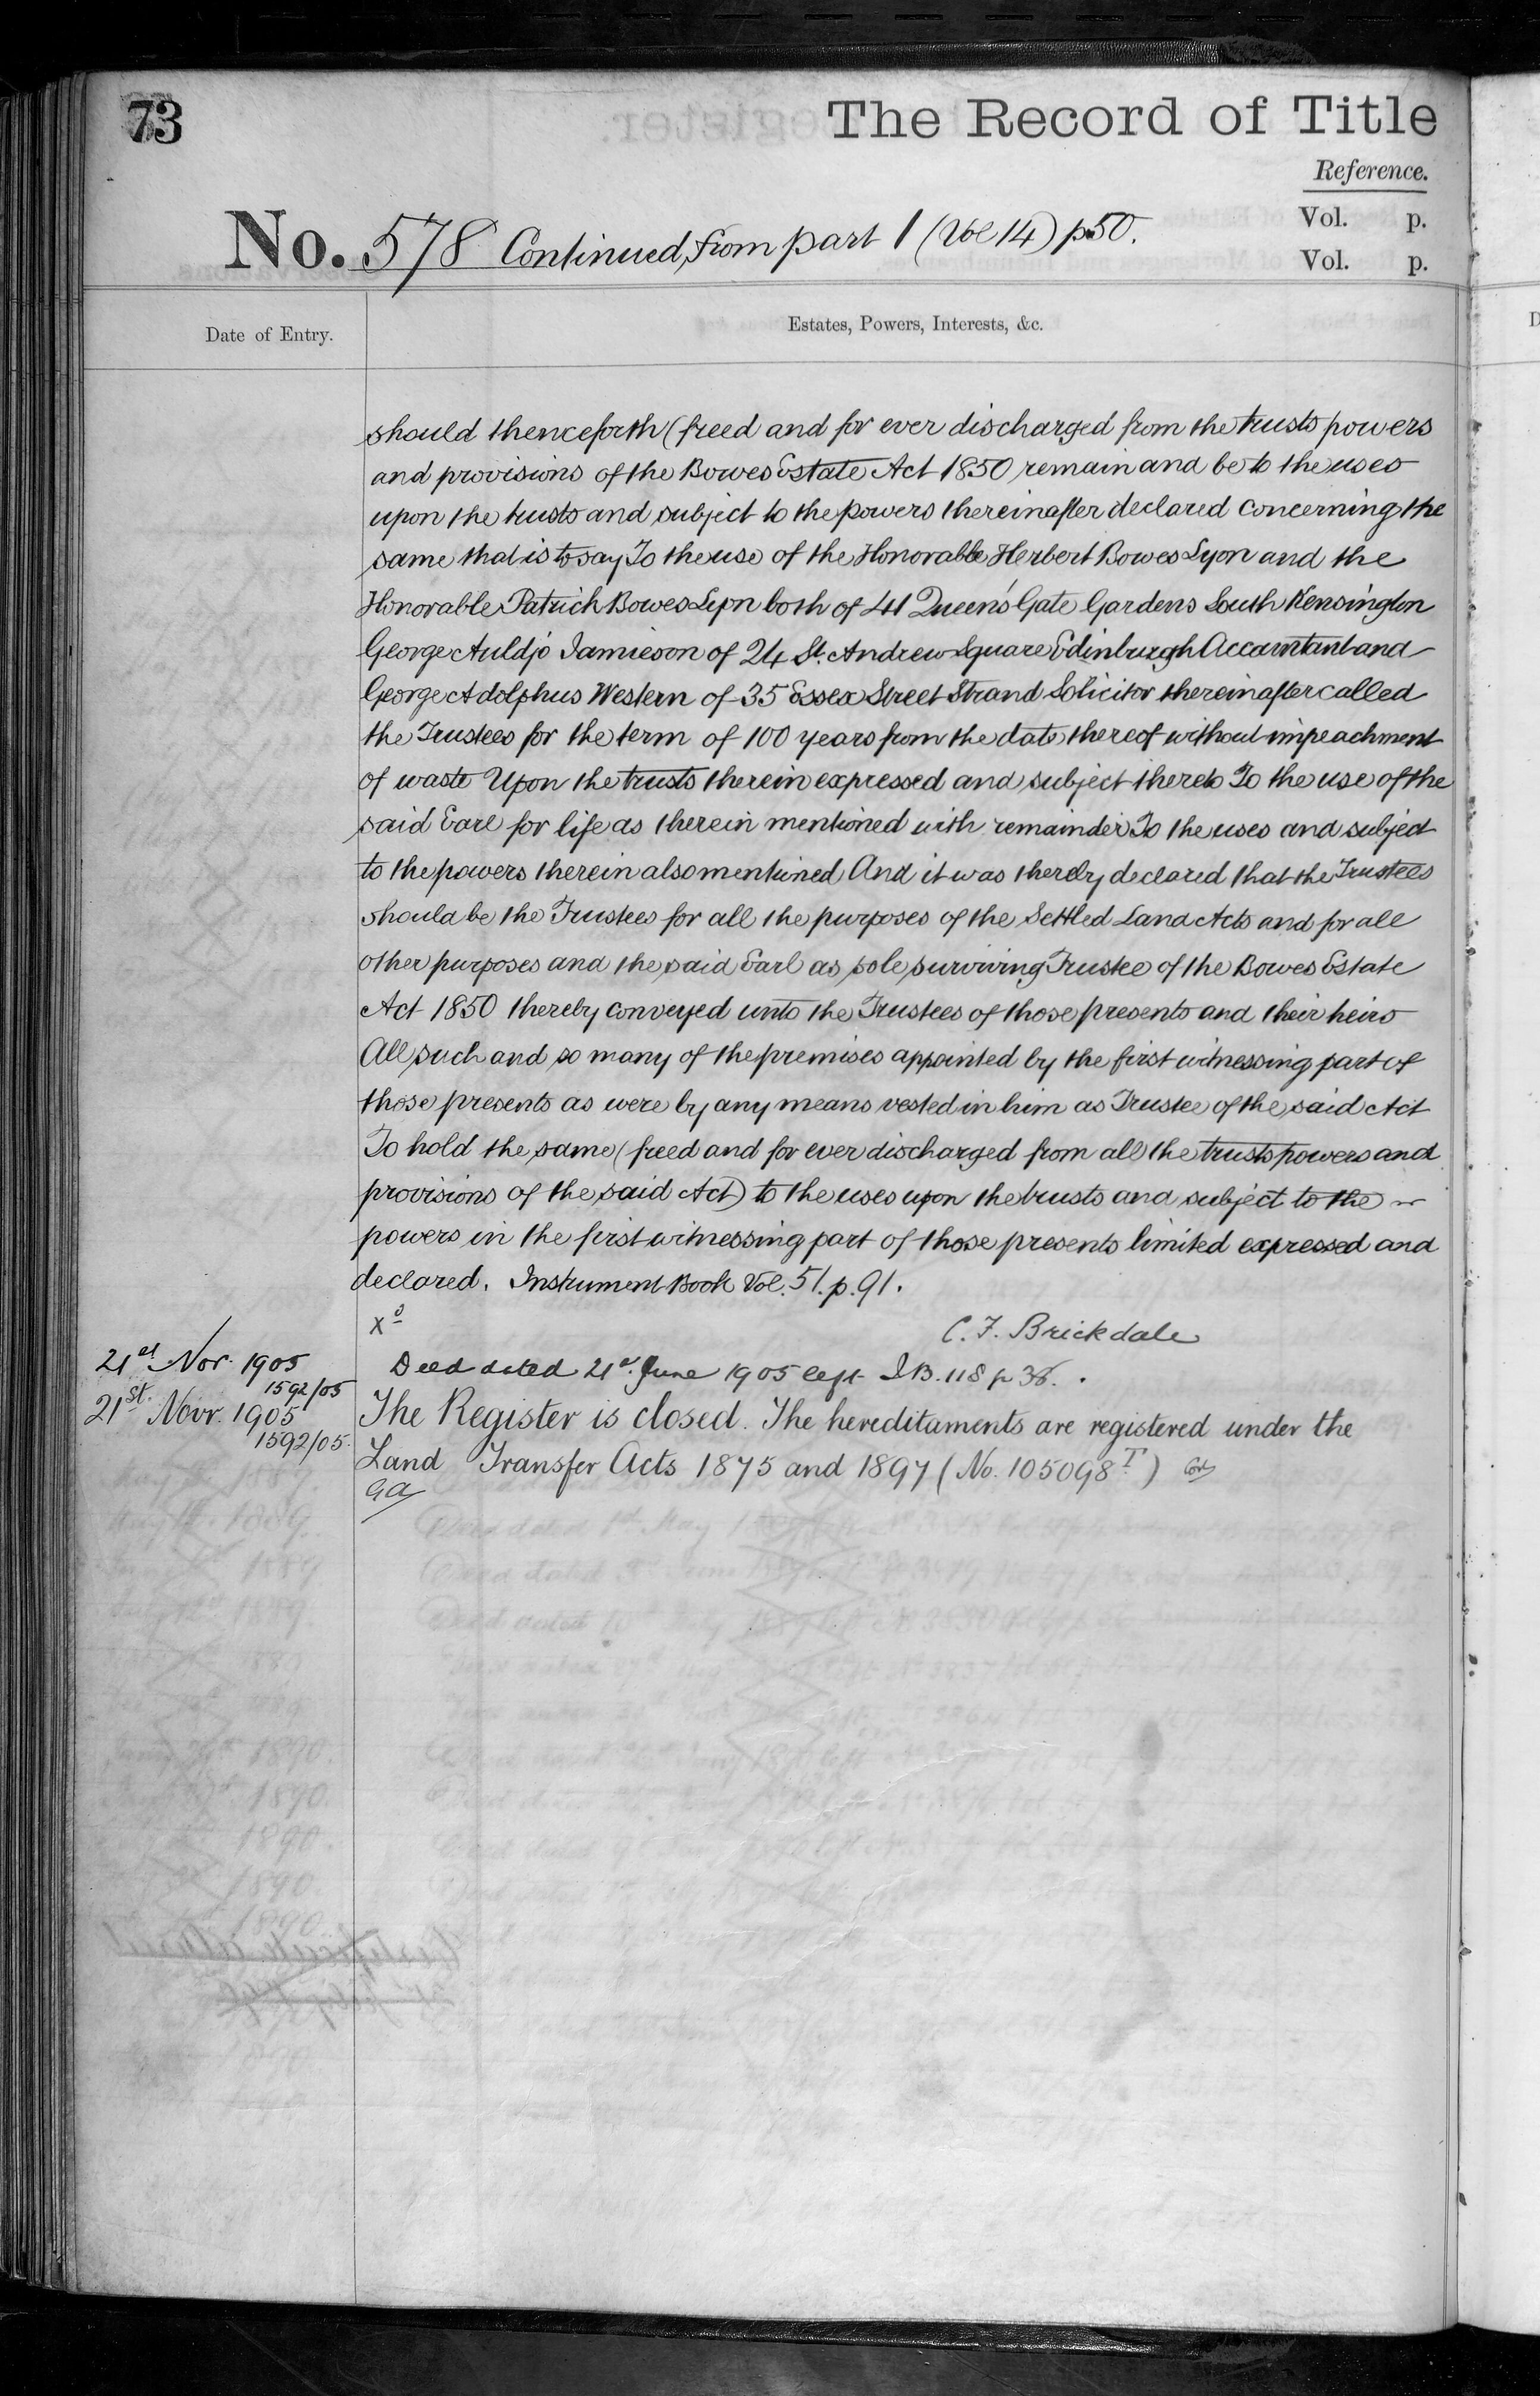 73
The Record of Title
Reference.
Vol. p.
Vol. p.
No. 578 Continued, from part 1 (Vol 14) p 50.
Date of Entry.
Estates, Powers, Interests, &c.
should thenceforth (freed and for ever discharged from the trusts powers
and provisions of the Bowes Estate Act 1850 remain and be to the uses
upon the trusts and subject to the powers thereinafter declared concerning the
same that is to say To the use of the Honorable Herbert Bowes Lyon and the
Honorable Patrick Bowes Lyon both of 41 Queen's Gate Gardens South Kensington
George Auldjo Jamieson of 24 St. Andrew Square Edinburgh Accountant and
George Adolphus Western of 35 Essex Street Strand Solicitor thereinafter called
the Trustees for the term of 100 years from the date thereof without impeachment
of waste Upon the trusts therein expressed and subject thereto To the use of the
said Earl for life as therein mentioned with remainder To the uses and subject
to the powers therein also mentioned And it was thereby declared that the Trustees
should be the Trustees for all the purposes of the Settled Land Acts and for all
other purposes and the said Earl as sole surviving Trustee of the Bowes Estate
Act 1850 thereby conveyed unto the Trustees of those presents and their heirs
All such and so many of the premises appointed by the first witnessing part of
those presents as were by any means vested in him as Trustee of the said Act
To hold the same (freed and for ever discharged from all the trusts powers and
provisions of the said Act) to the uses upon the trusts and subject to the
powers in the first witnessing part of those presents limited expressed and
declared. Instrument Book Vol. 51. p. 91.
Xd
C. F. Brickdale
21st Nov. 1905
1592/05
Deed dated 21st June 1905 left I.B. 118 p 36.
21st. Novr. 1905
1592/05.
The Register is closed. The hereditaments are registered under the
Land Transfer Acts 1875 and 1897 (No. 105098 T)
GA